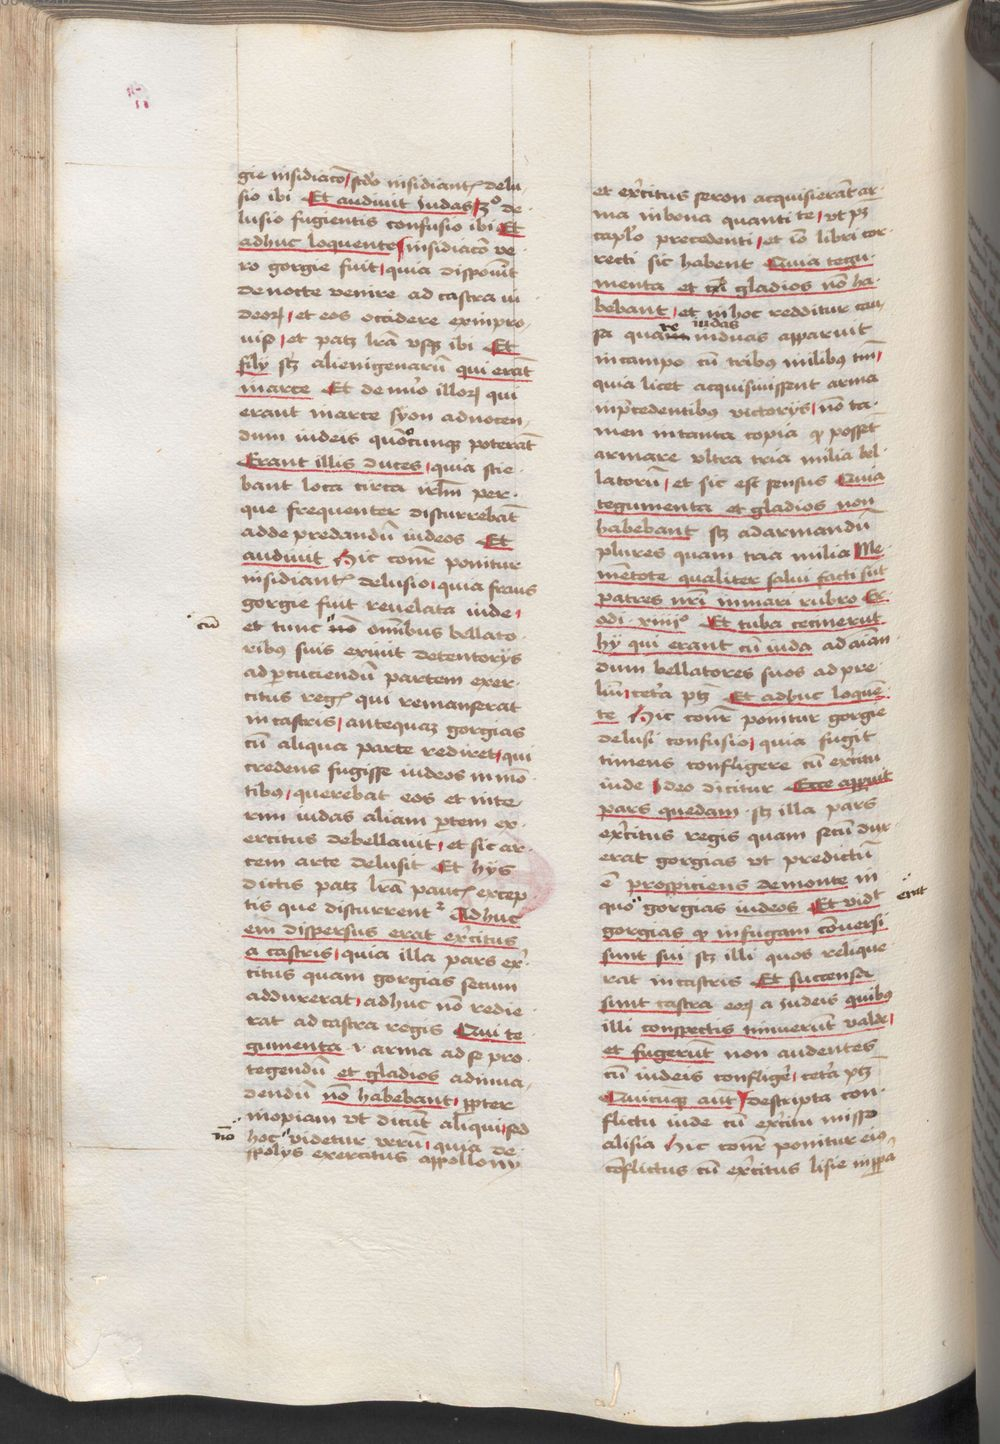 gie insidiacō / scđo insidiantꝭ delu
sio ibi Et audivit iudas / 3º de
lusio fugientis confusio ibi Et
adhuc loquente / insidiacō ve
ro gorgie fuit / quia disposuit
de nocte venire ad castra iu
deorꝝ / et eos occidere ex inpro
uiso / et patꝫ lrā vsqꝫ ibi Et
filij sꝫ alienigenarū qui erāt
in arce Et de nūo illorꝝ qui
erant in arce syon ad nocen
dum iudeis quōcunqꝫ poterāt
Erant illis duces / quia scie
bant loca circa irlm̄ per
que frequenter discurrebāt
ad depredandū iudeos Et
audiuit Hic conr̄ ponitur
insidiantꝭ delusio / quia fraus
gorgie fuit reuelata iude /
et tunc nō omībus bellato
ribꝰ suis exiuit de tentorijs
ad percuciendū partem exer
citus regꝭ qui remanserat
in castris / antequaꝫ gorgias
cū aliqua parte rediret / qui
credens fugisse iudeos in mō
tibꝰ / querebat eos et inte
rim iudas aliam ꝑtem ex
ercitus debellauit / et sic ar
tem arte delusit Et hijs
dictis patꝫ lrā paucꝭ excep
tis que discurrentꝛ Adhuc
em̄ dispersus erat ex̄citus
a castris / quia illa pars ex̄
citus quam gorgias secum
adduxerat / adhuc nō redie
rat ad castra regis Qui te
gumenta .i. arma ad se pro
tegendū et gladios ad inua
dendū nō habebant / ꝓpter
inopiam vt dicūt aliqui / sed
hoc videtur verū / quia de
spolijs exercitus appollonij
cū
nō
et ex̄citus seron acquisierāt ar
ma in bona quantitate / vt pꝫ
caplo precedenti / et iō libri cor
recti sic habent Quia tegu
menta et gladios nō ha
bebant / et in hoc redditur cau
sa quare iudas apparuit
in campo cū tribus milibꝰ tm̄ /
quia licet acquisiuissent arma
in p̄cedentibꝰ victorijs / nō ta
men in tanta copia ꝙ possēt
armare vltra tria milia bel
latorū / et sic est sensus Quia
tegumenta et gladios non
habebant sꝫ ad armandū
plures quam tria milia Me
mētote qualiter salui facti sūt
patres nr̄i in mari rubro Ex
odi xiiijº Et tuba cecinerūt
hij qui erant cū iuda ad aīan
dum bellatores suos ad pre
liū / cetā ptꝫ Et adhuc loquē
te Hic conr̄ ponitur gorgie
delusi confusio / quia fugit
timens confligere cū ex̄citu
iude / Ideo dicitur Ecce appuit
pars quedam sꝫ illa pars
ex̄citus regis quam secū dux
erat gorgias vt predictū
ē prospiciens de monte in
quo gorgias iudeos Et vidt
gorgias ꝙ in fugam cōuersi
sunt sui sꝫ illi quos relique
rat in castris Et succensa
sunt castra eorꝝ a iudeis quibꝰ
illi conspectis timuerūt valde /
et fugerūt non audentes
cū iudeis confligē / cetā ptꝫ
Quicunqꝫ aūt Descripta con
flictu iude cū ex̄citu misso
a lisia Hic conr̄ ponitur eiꝰ
cōflictus cū ex̄citus lisie
erat